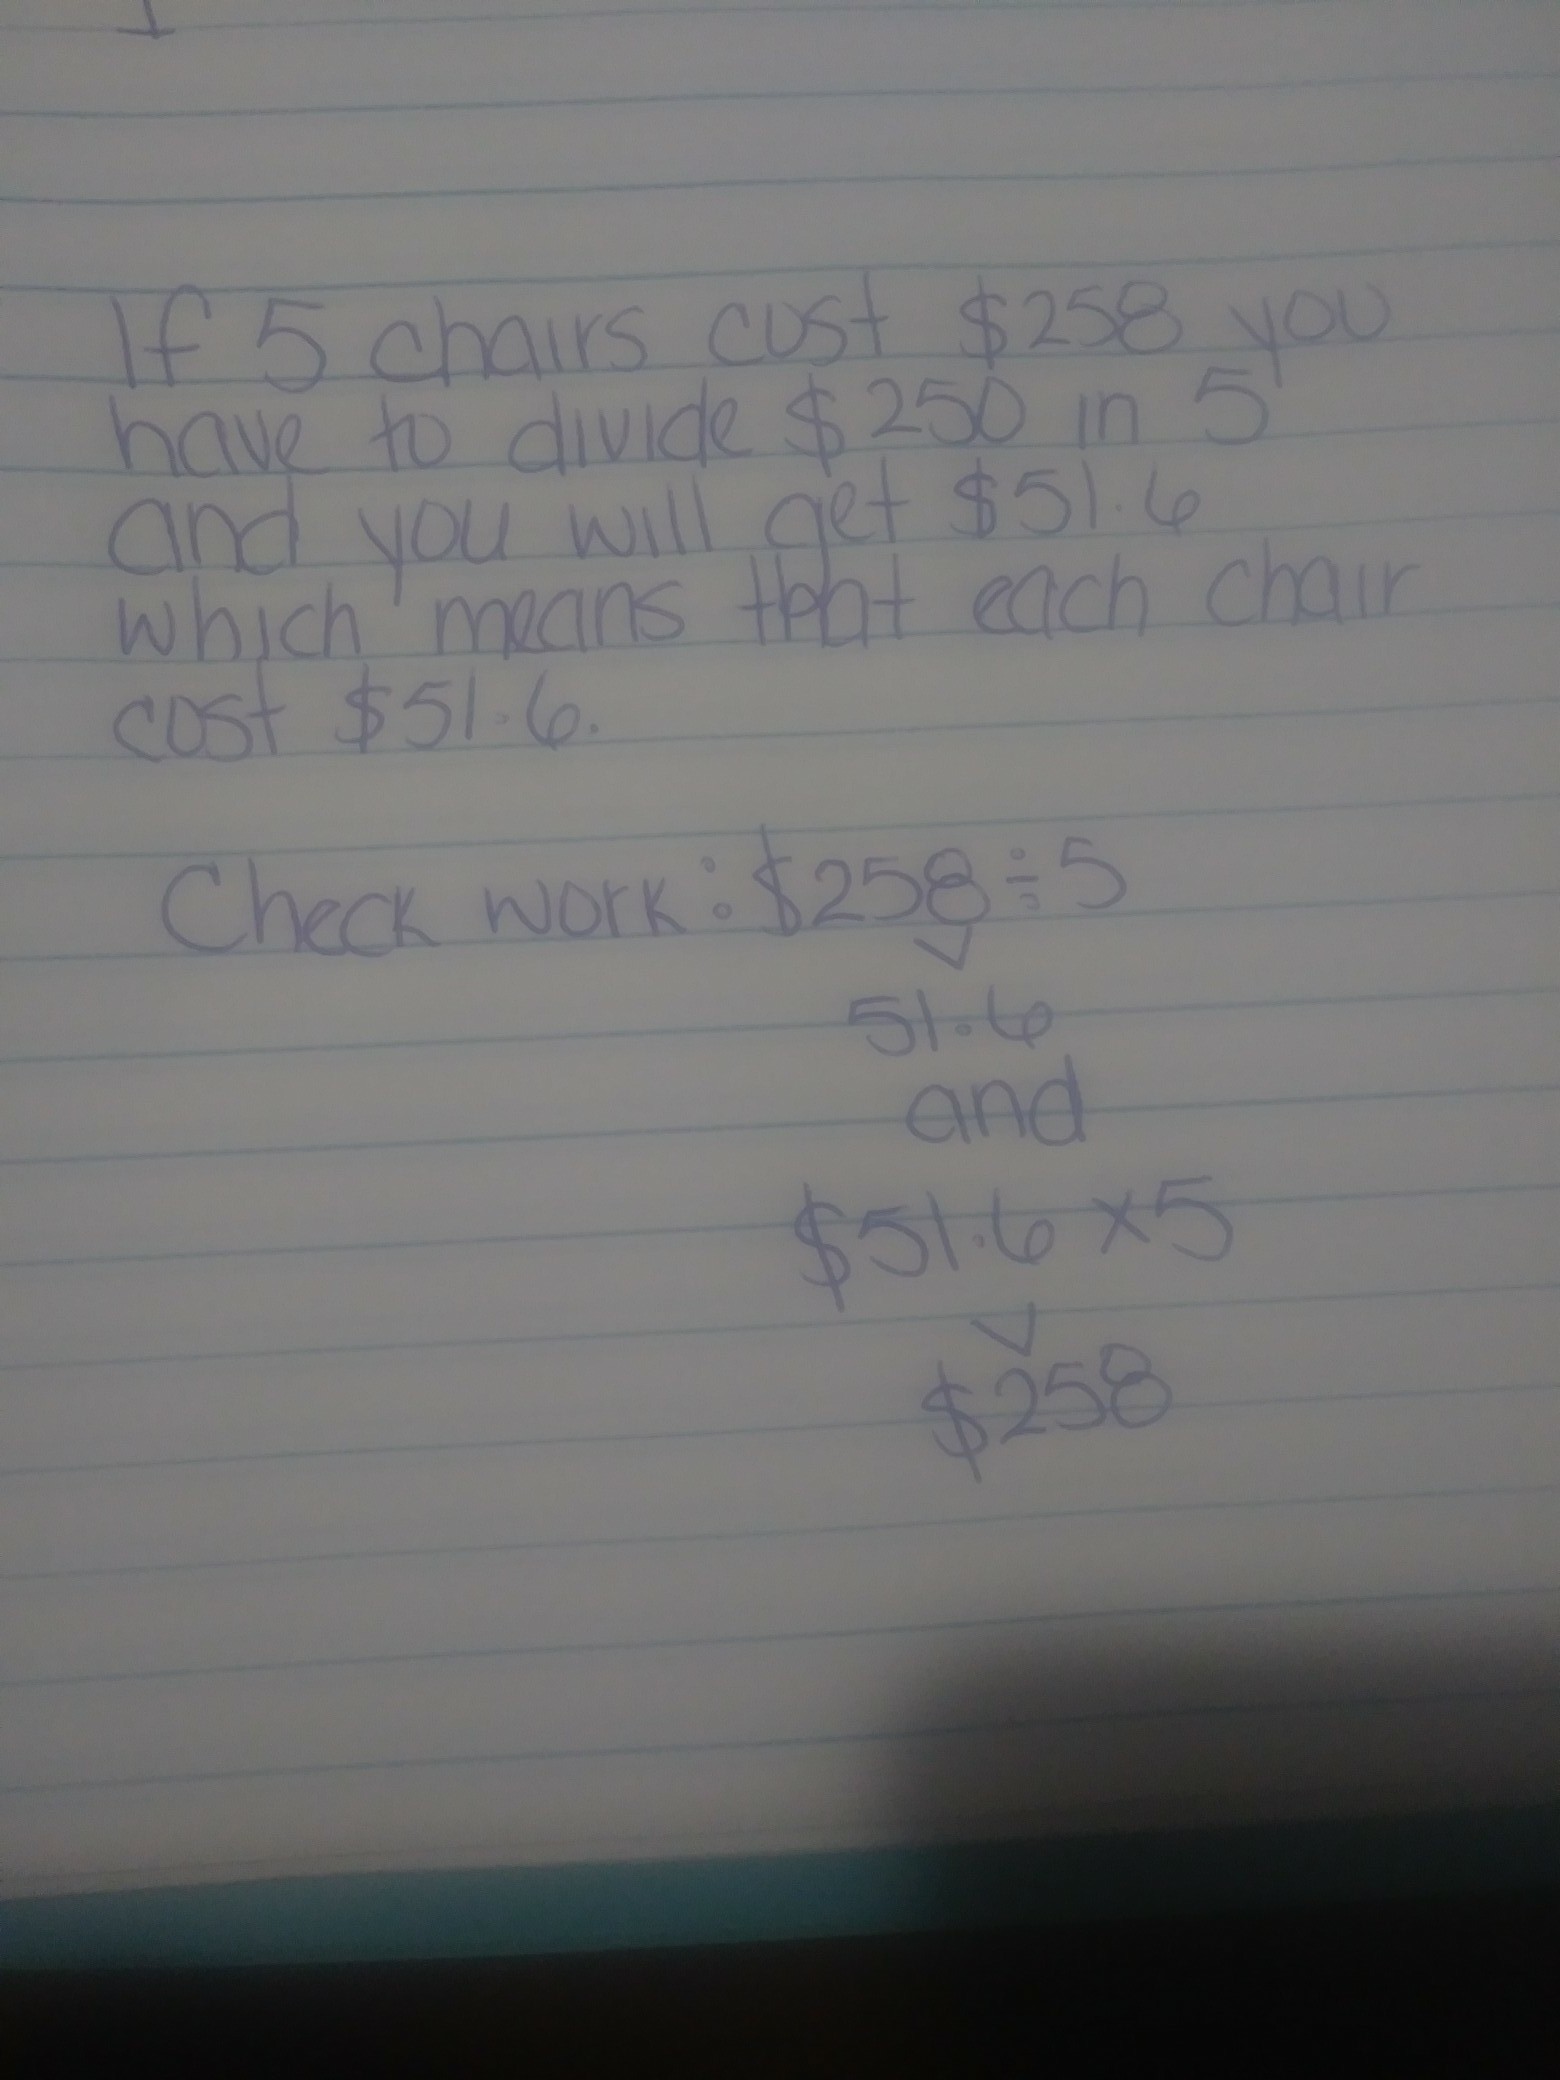 If 5 chairs cost $258 you
have to divide $250 in 5
and you will get $51.6
which means that each chair
cost $51.6.
Check work: $258÷5
51.6
and
$51.6 x5
$258